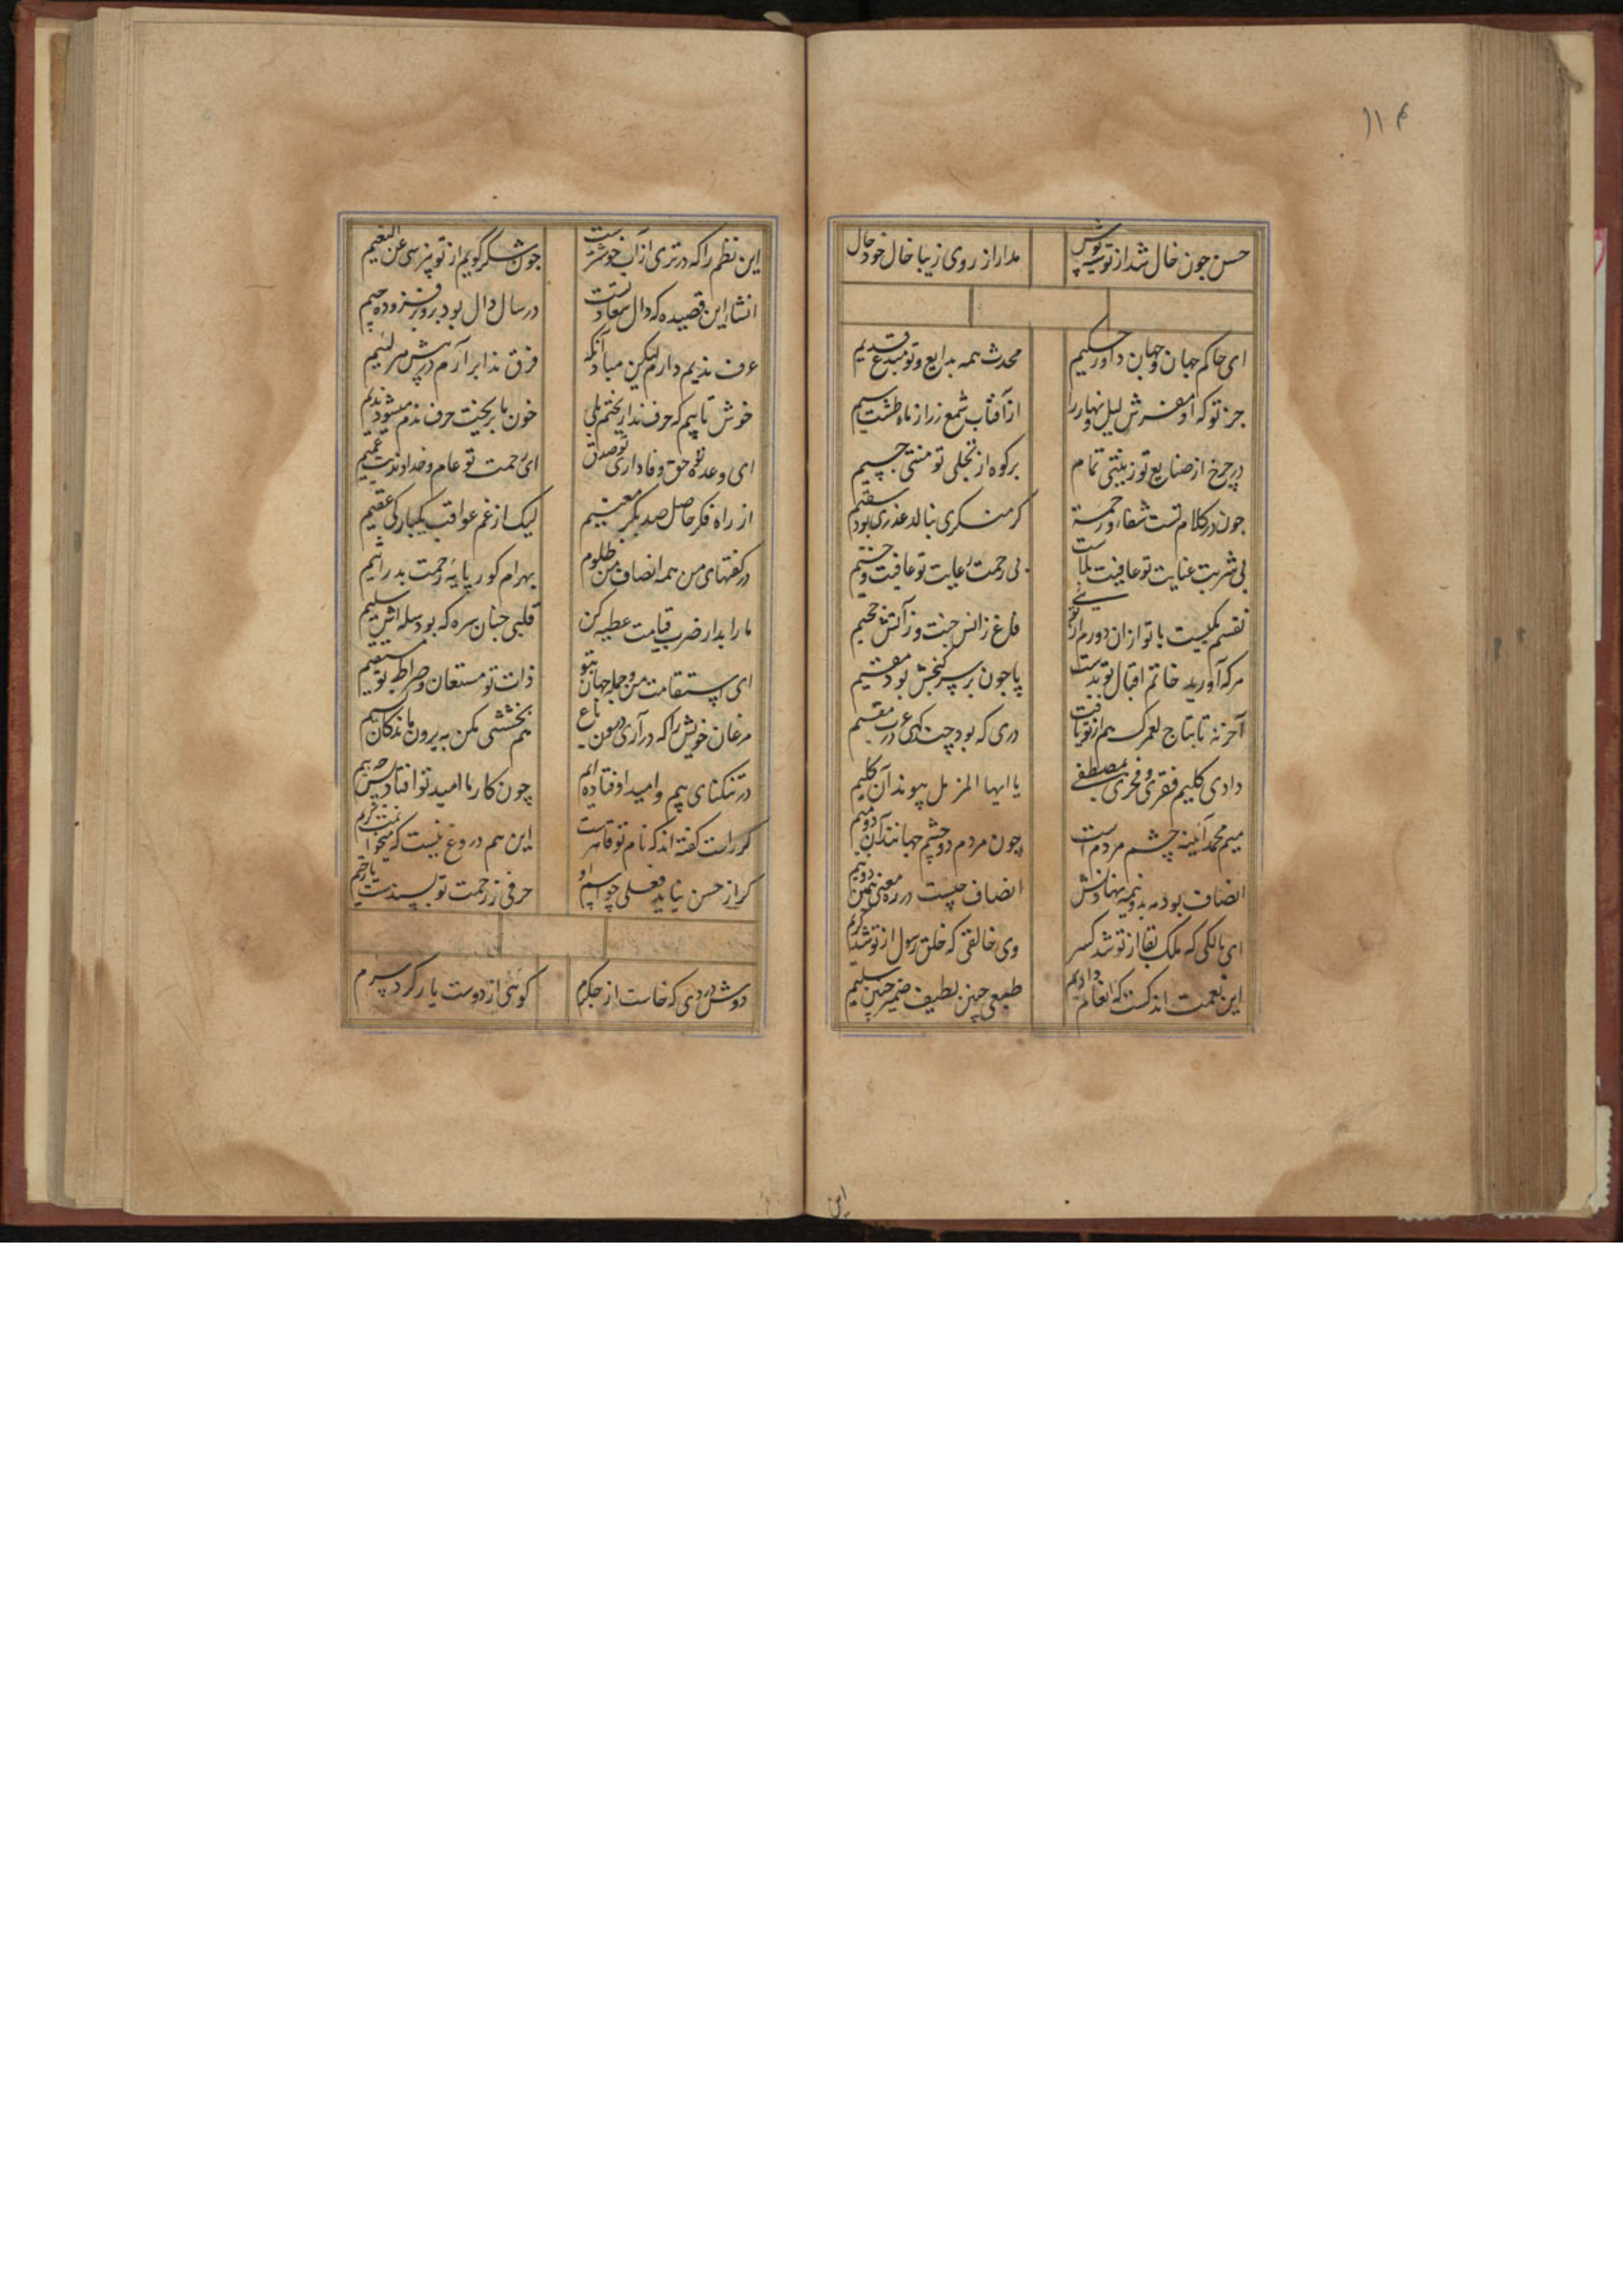 ۱۱۴
حسن جون خال شد از تو سیه پوش
مدار از روی زیبا خال خود خال
ای حاکم جهان و جهان داور حکیم
محدث همه بدایع و تو مبدع قدیم
جز تو که او مفرش لیل و نهار را
از آفتاب شمع زر از ماه طشت سیم
در چرخ از صنایع تو زینتی تمام
بر کوه از تجلی تو منتی جسیم
جون در کلام تست شفاء و رحمة
کر منکری بنالد عذری بود سقیم
بی شربت عنایت تو عافیت بلاست
بی رحمت رعایت تو عافیت وخیم
نفسم بکیست با تو از آن دورم از تویی
فارغ ز انس جنت وز آتش جحیم
هر که آورید خاتم اقبال تو بدست
پا جون بر سر کنجش بود مقیم
آخر نه تا بتاج لعمرک هم از تو یافت
دری که بود چند کهی در عرب مقیم
دادی کلیم فقری و فخری بمصطفی
یا ایها المزمل پیوند آن کلیم
میم محمد آینه چشم مردم است
چون مردم دو چشم جهانند آن دو میم
انصاف بود مه بدو نیمه نهادنش
انصاف چیست در ره معنی همین دو نیم
ای مالکی که ملک بقا از تو شد کسر
وی خالقی که خلق رسول از تو شد کریم
این نعمت اندکست که انعام دادیم
طبعی چنین لطیف ضمیر چنین سلیم
این
این نظم را که در تری از آب خوشترست
جون شکر گویم از تو بپرسی عن النعیم
انشاء این قصیده که دال سعادتست
در سال دال بود برو بر فزوده جیم
عرف ندیم دارم لیکن مباد آنکه
فرق ندا بر آرم در پیش هر لئیم
خوش تا بیم که حرف ندا ریختم ولی
خون ما بریخت حرف ندم میشود ندیم
ای وعده تو حق و وفاداری تو صدق
ای رحمت تو عام و خداوندیت عمیم
از راه فکر حاصل صد بکر معنییم
لیک از غم عواقب یکبارکی عقیم
در کفتهای من همه انصاف من ظلوم
بهرام کور پایه رحمت بدر اثیم
ما را بدار ضرب قیامت عطیه کن
قلبی چنان سره که بود سله اش سلیم
ای استقامت من و جمله جهان بتو
ذات تو مستعان و صراط تو مستقیم
مرغان خویش را که در آری درون باغ
هم بخششی بکن به برون ماندکان سیم
در تنکنای بیم و امید اوفتاده ایم
چون کار ما امید تو افتاد پس چه بیم
کر راست کفته اند که نام تو قاهرست
این هم دروغ نیست که میخوانمت کریم
کر از حسن نیاید فعلی چو اسم او
حرفی ز رحمت تو بسندست یا رحیم
دوش دردی که خاست از جکرم
کوئی از دوست یار کرد سرم